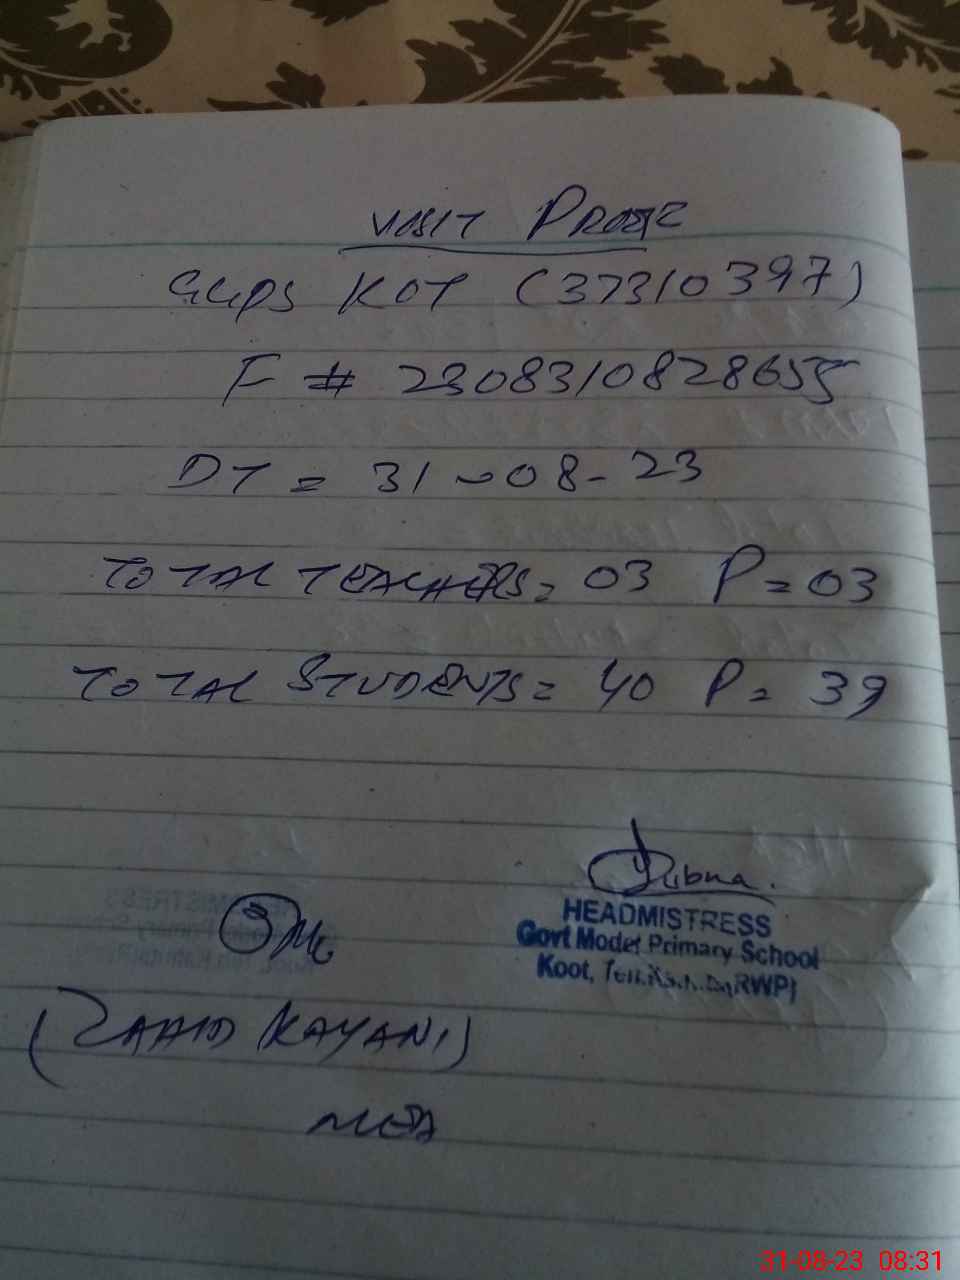 VISIT PROOF
GMPS KOT (37310397)
F # 2308310828655
DT = 31-08-23
TOTAL TEACHERS = 03 P = 03
TOTAL STUDENTS = 40 P = 39
Lubna.
HEADMISTRESS
Govt Model Primary School
Koot, (RWP)
(ZAHID KAYANI)
MEA
31-08-23 08:31